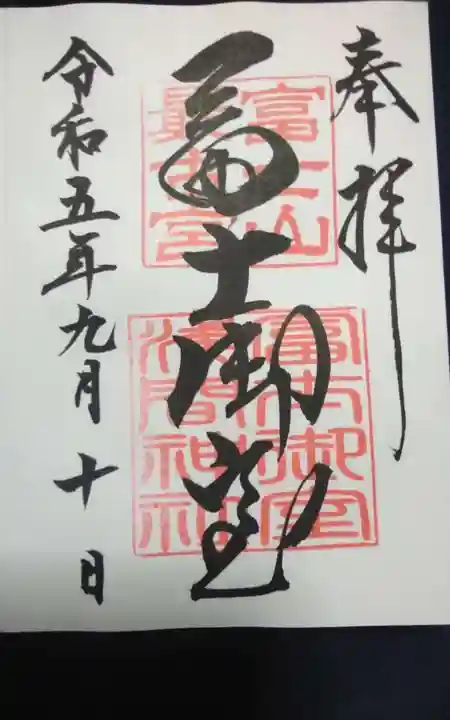 奉拝
冨士御室
富士山
最古宮
冨士御室
浅間神社
令和五年九月十日